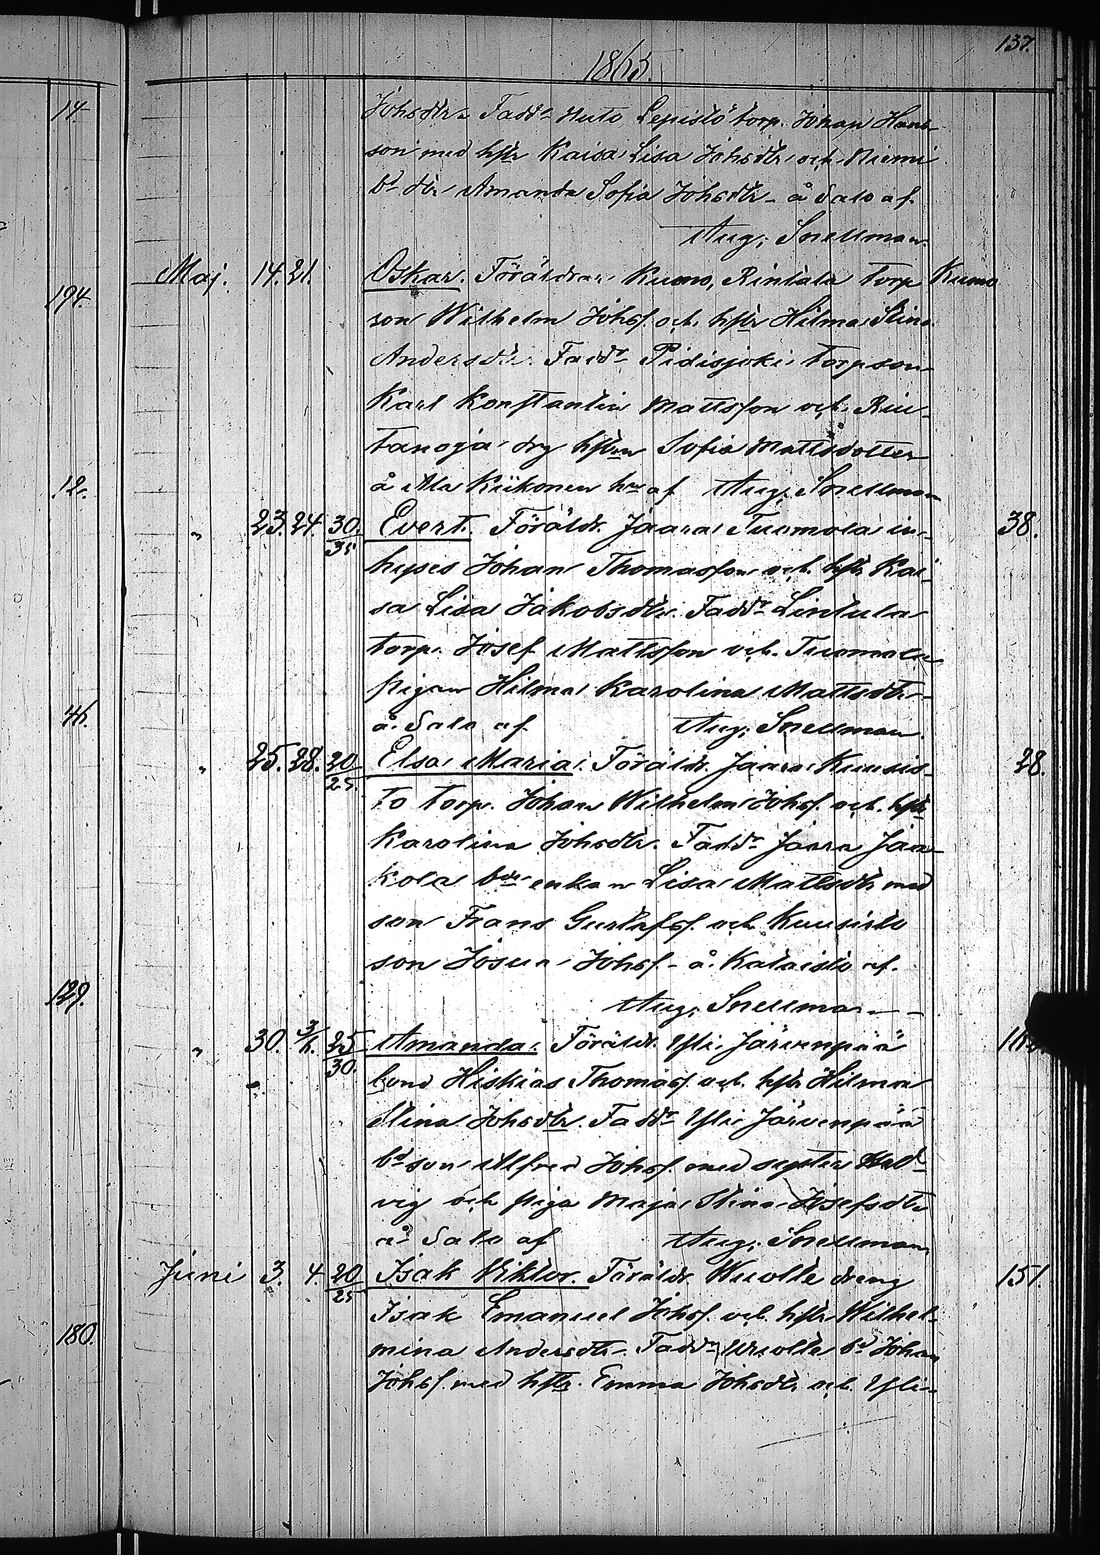 137.
1865.
14
Johsdtr. Fadd. Huto Lepistö torp. Johan Hans-
son med hstr Kaisa Lisa Johsdtr och Niemi
bd dtr Amanda Sofia Johsdtr - å Salo af
Aug. Snellman.
Maj. 14. 21. Oskar. Föräldrar Kumo, Rintala torp Kumo
194.
son Wilhelm Johs. och hstr Hilma Stina
Andersdtr. Fadd. Pidisjoki torpson
Karl Konstantin Mattsson och Rin-
tanoja drg hstrn Sofia Mattsdotter
12. å Ala Kiikonen hm af Aug. Snellman
" 23. 24. 30/35 Evert. Föräldr. Jaara Tuomola in- 38.
hyses Johan Thomasson och hstr Kai-
sa Lisa Jakobsdtr. Fadd. Lintula
torp. Josef Mattsson och Tuomola
pigan Hilma Karolina Mattsdtr-
46. å Salo af Aug. Snellman.
" 25. 28. 20/25. Elsa Maria. Föräldr. Jaara Kuusis- 28.
to torp. Johan Wilhelm Johs. och hstr
Karolina Johsdtr. Fadd. Jaara Jaa-
kola bde enkan Lisa Mattsdtr med
son Frans Gustafs. och Kuusisto
son Josua Johs. - å Kataisto af.
129. Aug. Snellman -
" 30. 3/6. 25/30. Amanda. Föräldr. Yli Järvenpää
bond Hiskias Thomas. och hstr Hilma
Stina Johsdtr. Fadd. Yli Järvenpää
bd son Alfred Johs. med syster Hed-
vig och piga Maja Stina Josefsdtr
å Salo af Aug. Snellman
Juni 3. 4. 20/25 Isak Viktor. Föräldr. Wuolle dreng 151.
Isak Emanuel Johs. och hstr Wilhel-
180. mina Andersdtr. Fadd. Wuolle bd Johan
Johs. med hstr. Emma Johsdtr och Yli-